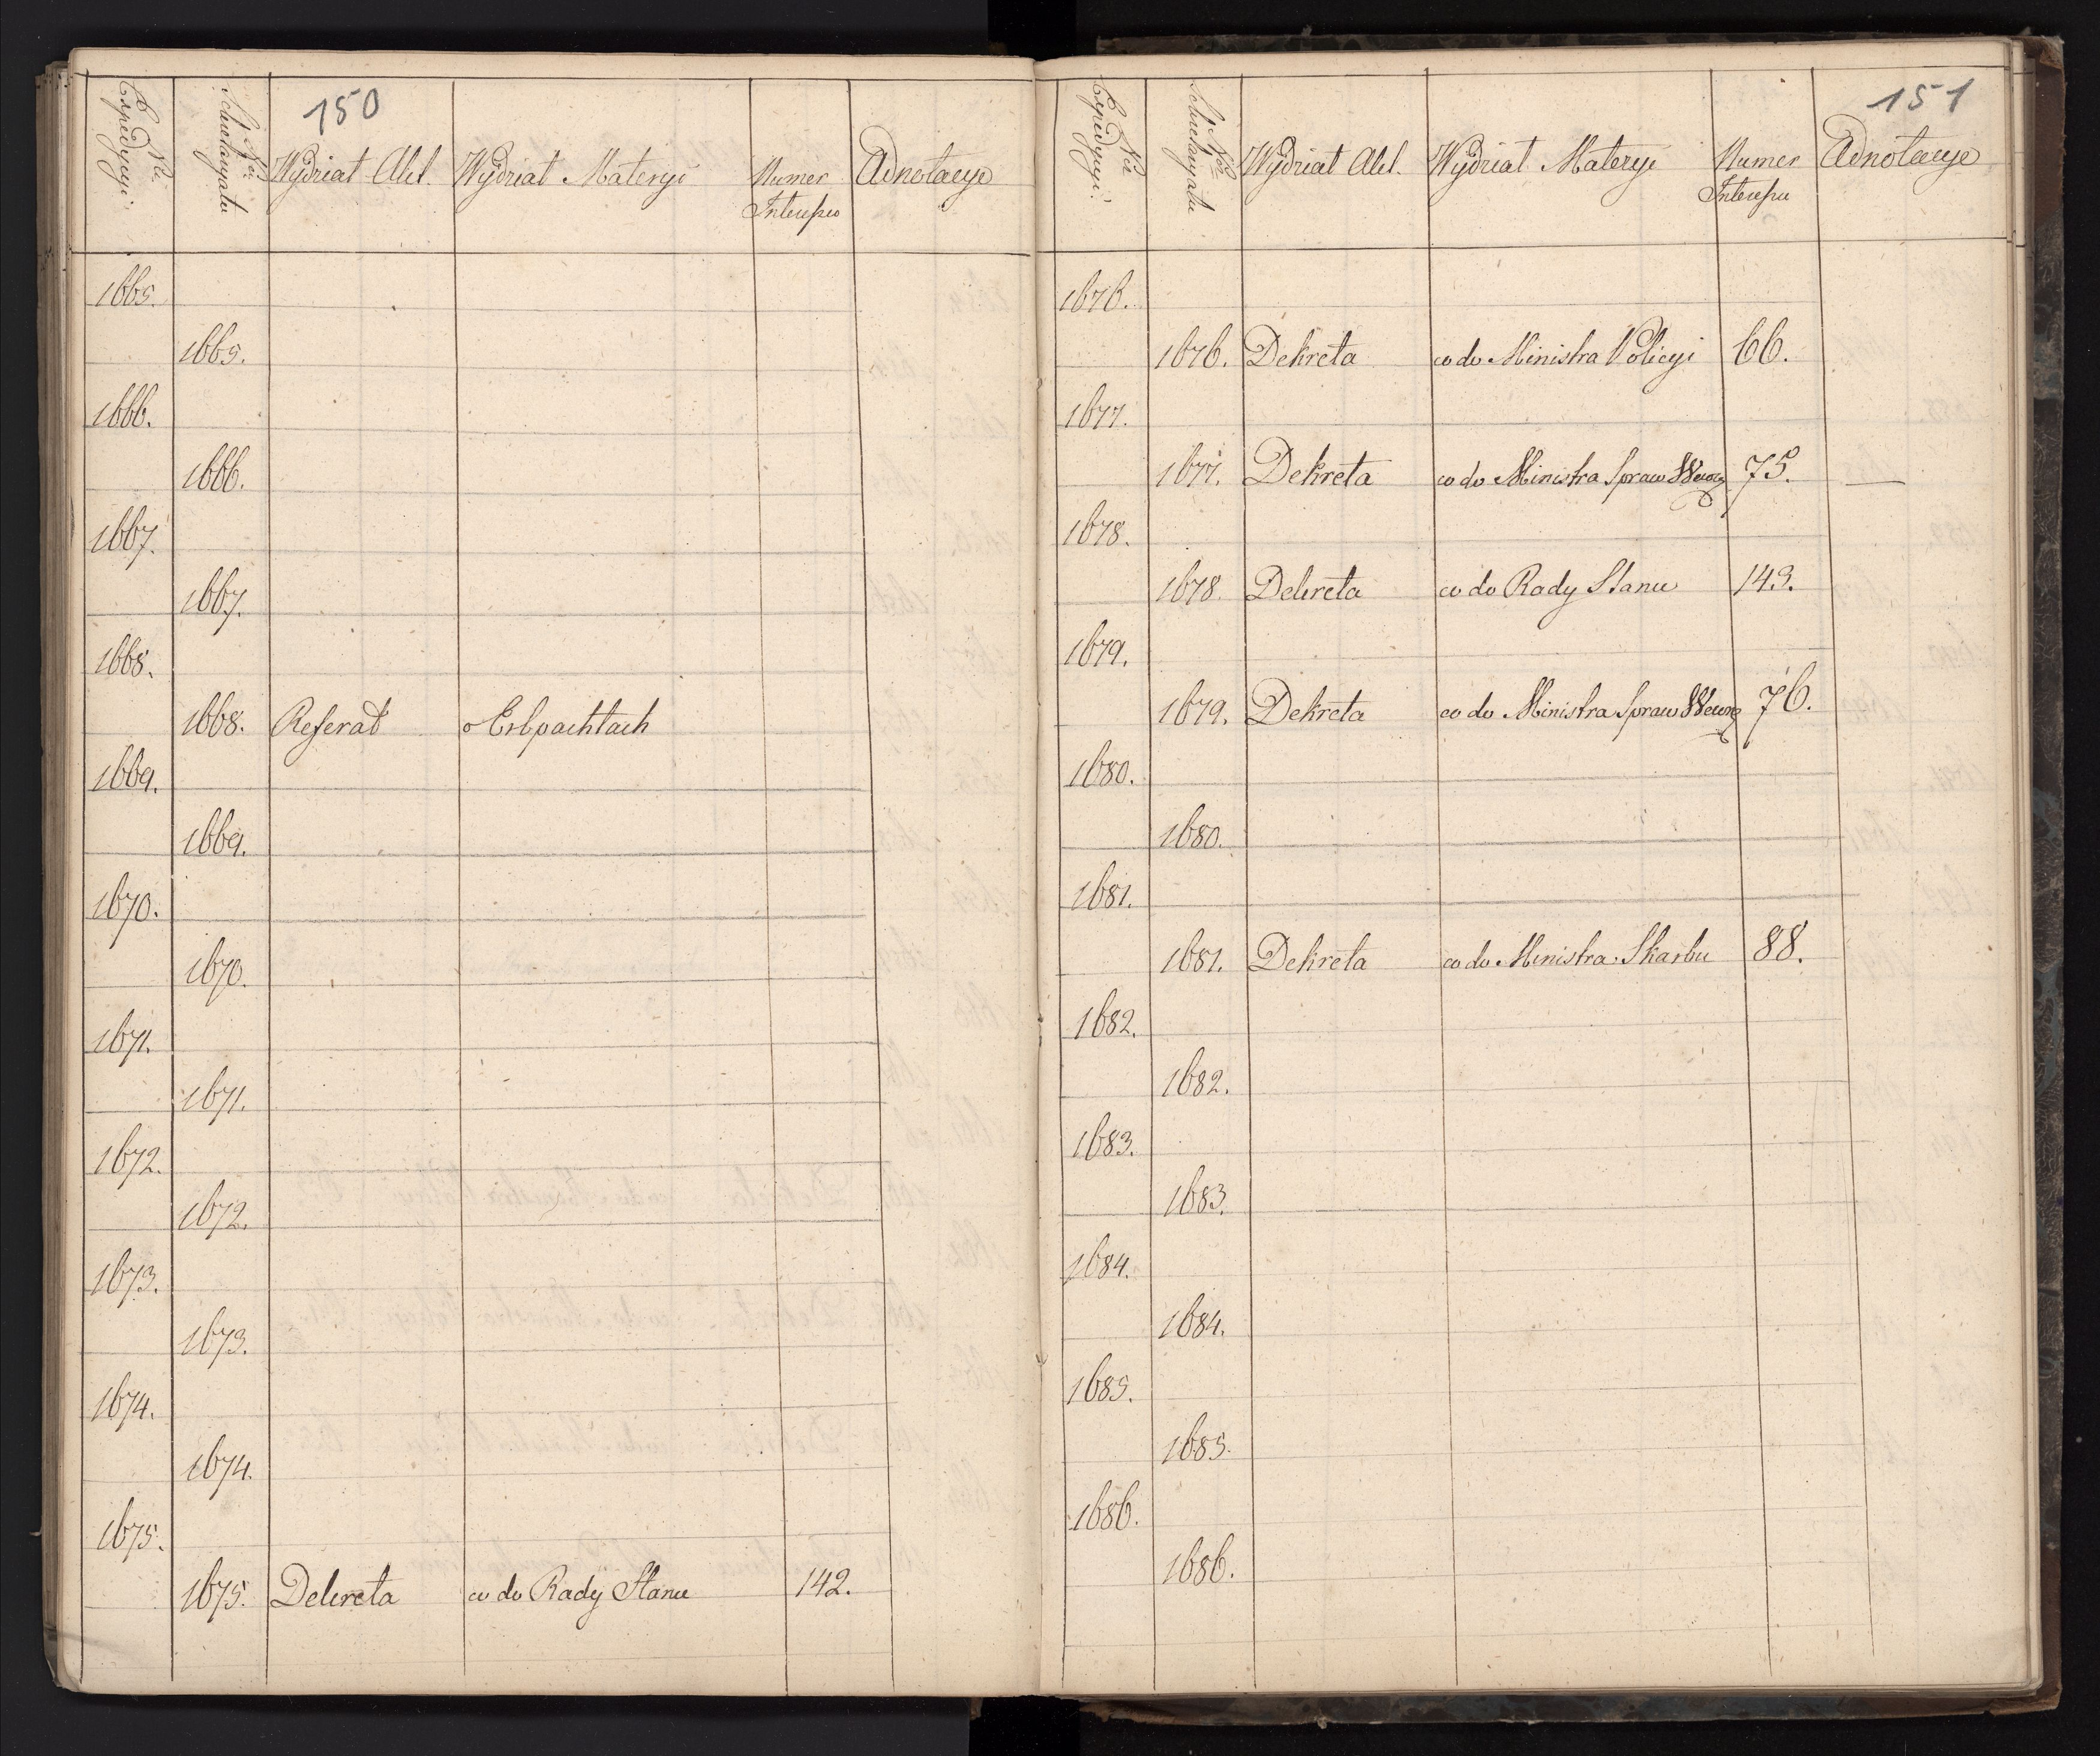 150
Nro Expedycyi.
Nro Sekretaryatu
Wydział Akt.
Wydział Materyi
Numer
Adnotacye
1665.
1665.
1666.
1666.
1667.
1667.
1668.
1668. Referat o Erbpachtach
1669.
1669.
1670.
1670.
1671.
1671.
1672.
1672.
1673.
1673.
1674.
1674.
1675.
1675. Dekreta co do Rady Stanu 142.
151
Expedycyi.
Sekretaryatu
Wydział Akt.
Wydział Materyi
Numer
Adnotacye
1676.
1676. Dekreta co do Ministra Policyi 66.
1677.
1677. Dekreta co do Ministra Spraw Wewn 75. —
1678.
1678. Dekreta co do Rady Stanu 143.
1679.
1679. Dekreta co do Ministra Spraw Wewn 76.
1680.
1680.
1681.
1681. Dekreta co do Ministra Skarbu 88.
1682.
1682.
1683.
1683.
1684.
1684.
1685.
1685.
1686.
1686.